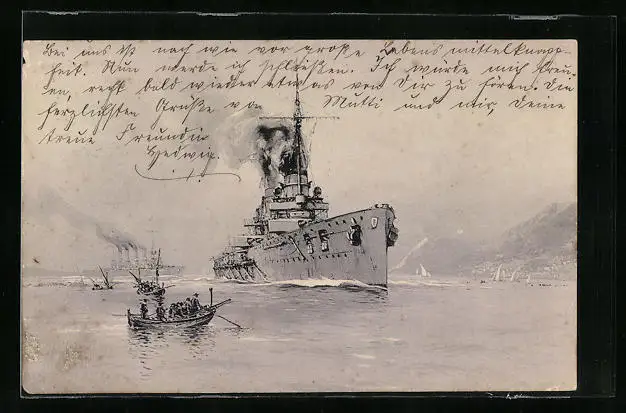 Bei uns ist nach wie vor große Lebensmittelknapp-
heit. Nun werde ich schließen. Ich würde mich freu-
en, recht bald wieder etwas von Dir zu hören. Die
herzlichsten Grüße von Mutti und mir, Deine
treue Freundin
Hedwig.